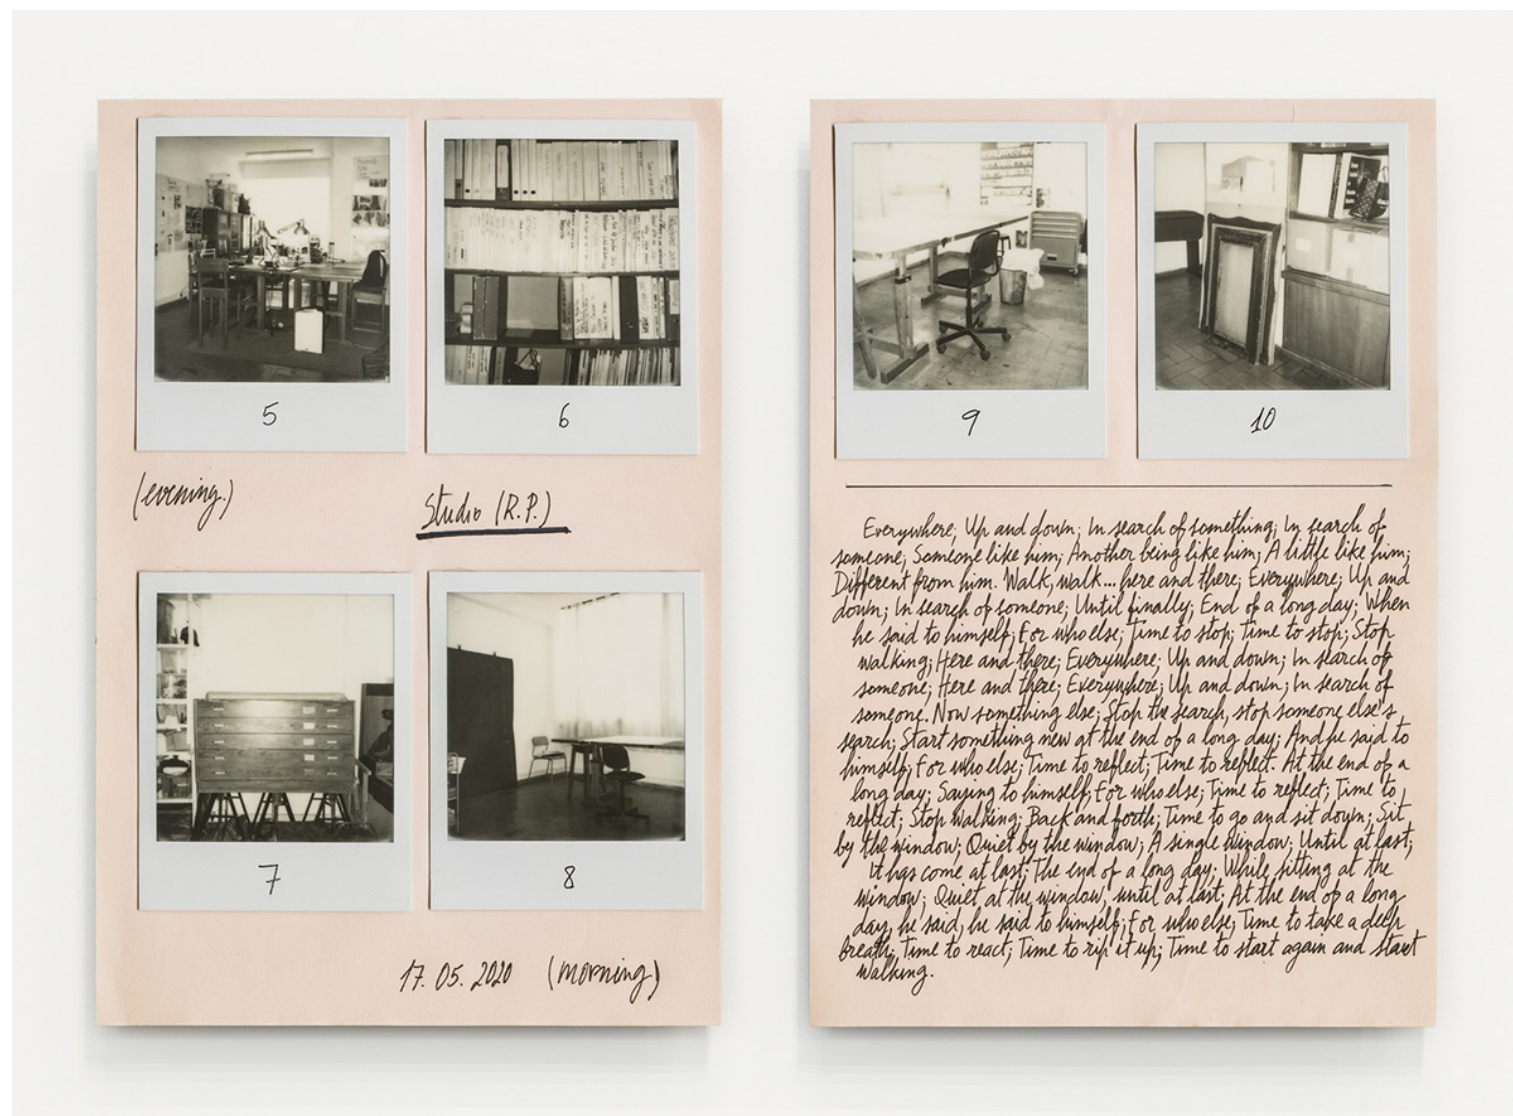 5
6
(evening.)
Studio (R.P.)
7
8
17. 05. 2020 (morning)
9
10
Everywhere; Up and down; In search of something; In search of
someone; Someone like him; Another being like him; A little like him;
Different from him. Walk, walk... here and there; Everywhere; Up and
down; In search of someone; Until finally; End of a long day; When
he said to himself; For who else; Time to stop; Time to stop; Stop
walking; Here and there; Everywhere; Up and down; In search of
someone; Here and there; Everywhere; Up and down; In search of
someone. Now something else; Stop the search, stop someone else's
search; Start something new at the end of a long day; And he said to
himself; For who else; Time to reflect; Time to reflect. At the end of a
long day; Saying to himself; For who else; Time to reflect; Time to
reflect; Stop walking; Back and forth; Time to go and sit down; Sit
by the window; Quiet by the window; A single window; Until at last;
It has come at last; The end of a long day; While sitting at the
window; Quiet at the window, until at last; At the end of a long
day, he said, he said to himself; For who else; Time to take a deep
Breath; Time to react; Time to rip it up; Time to start again and start
walking.